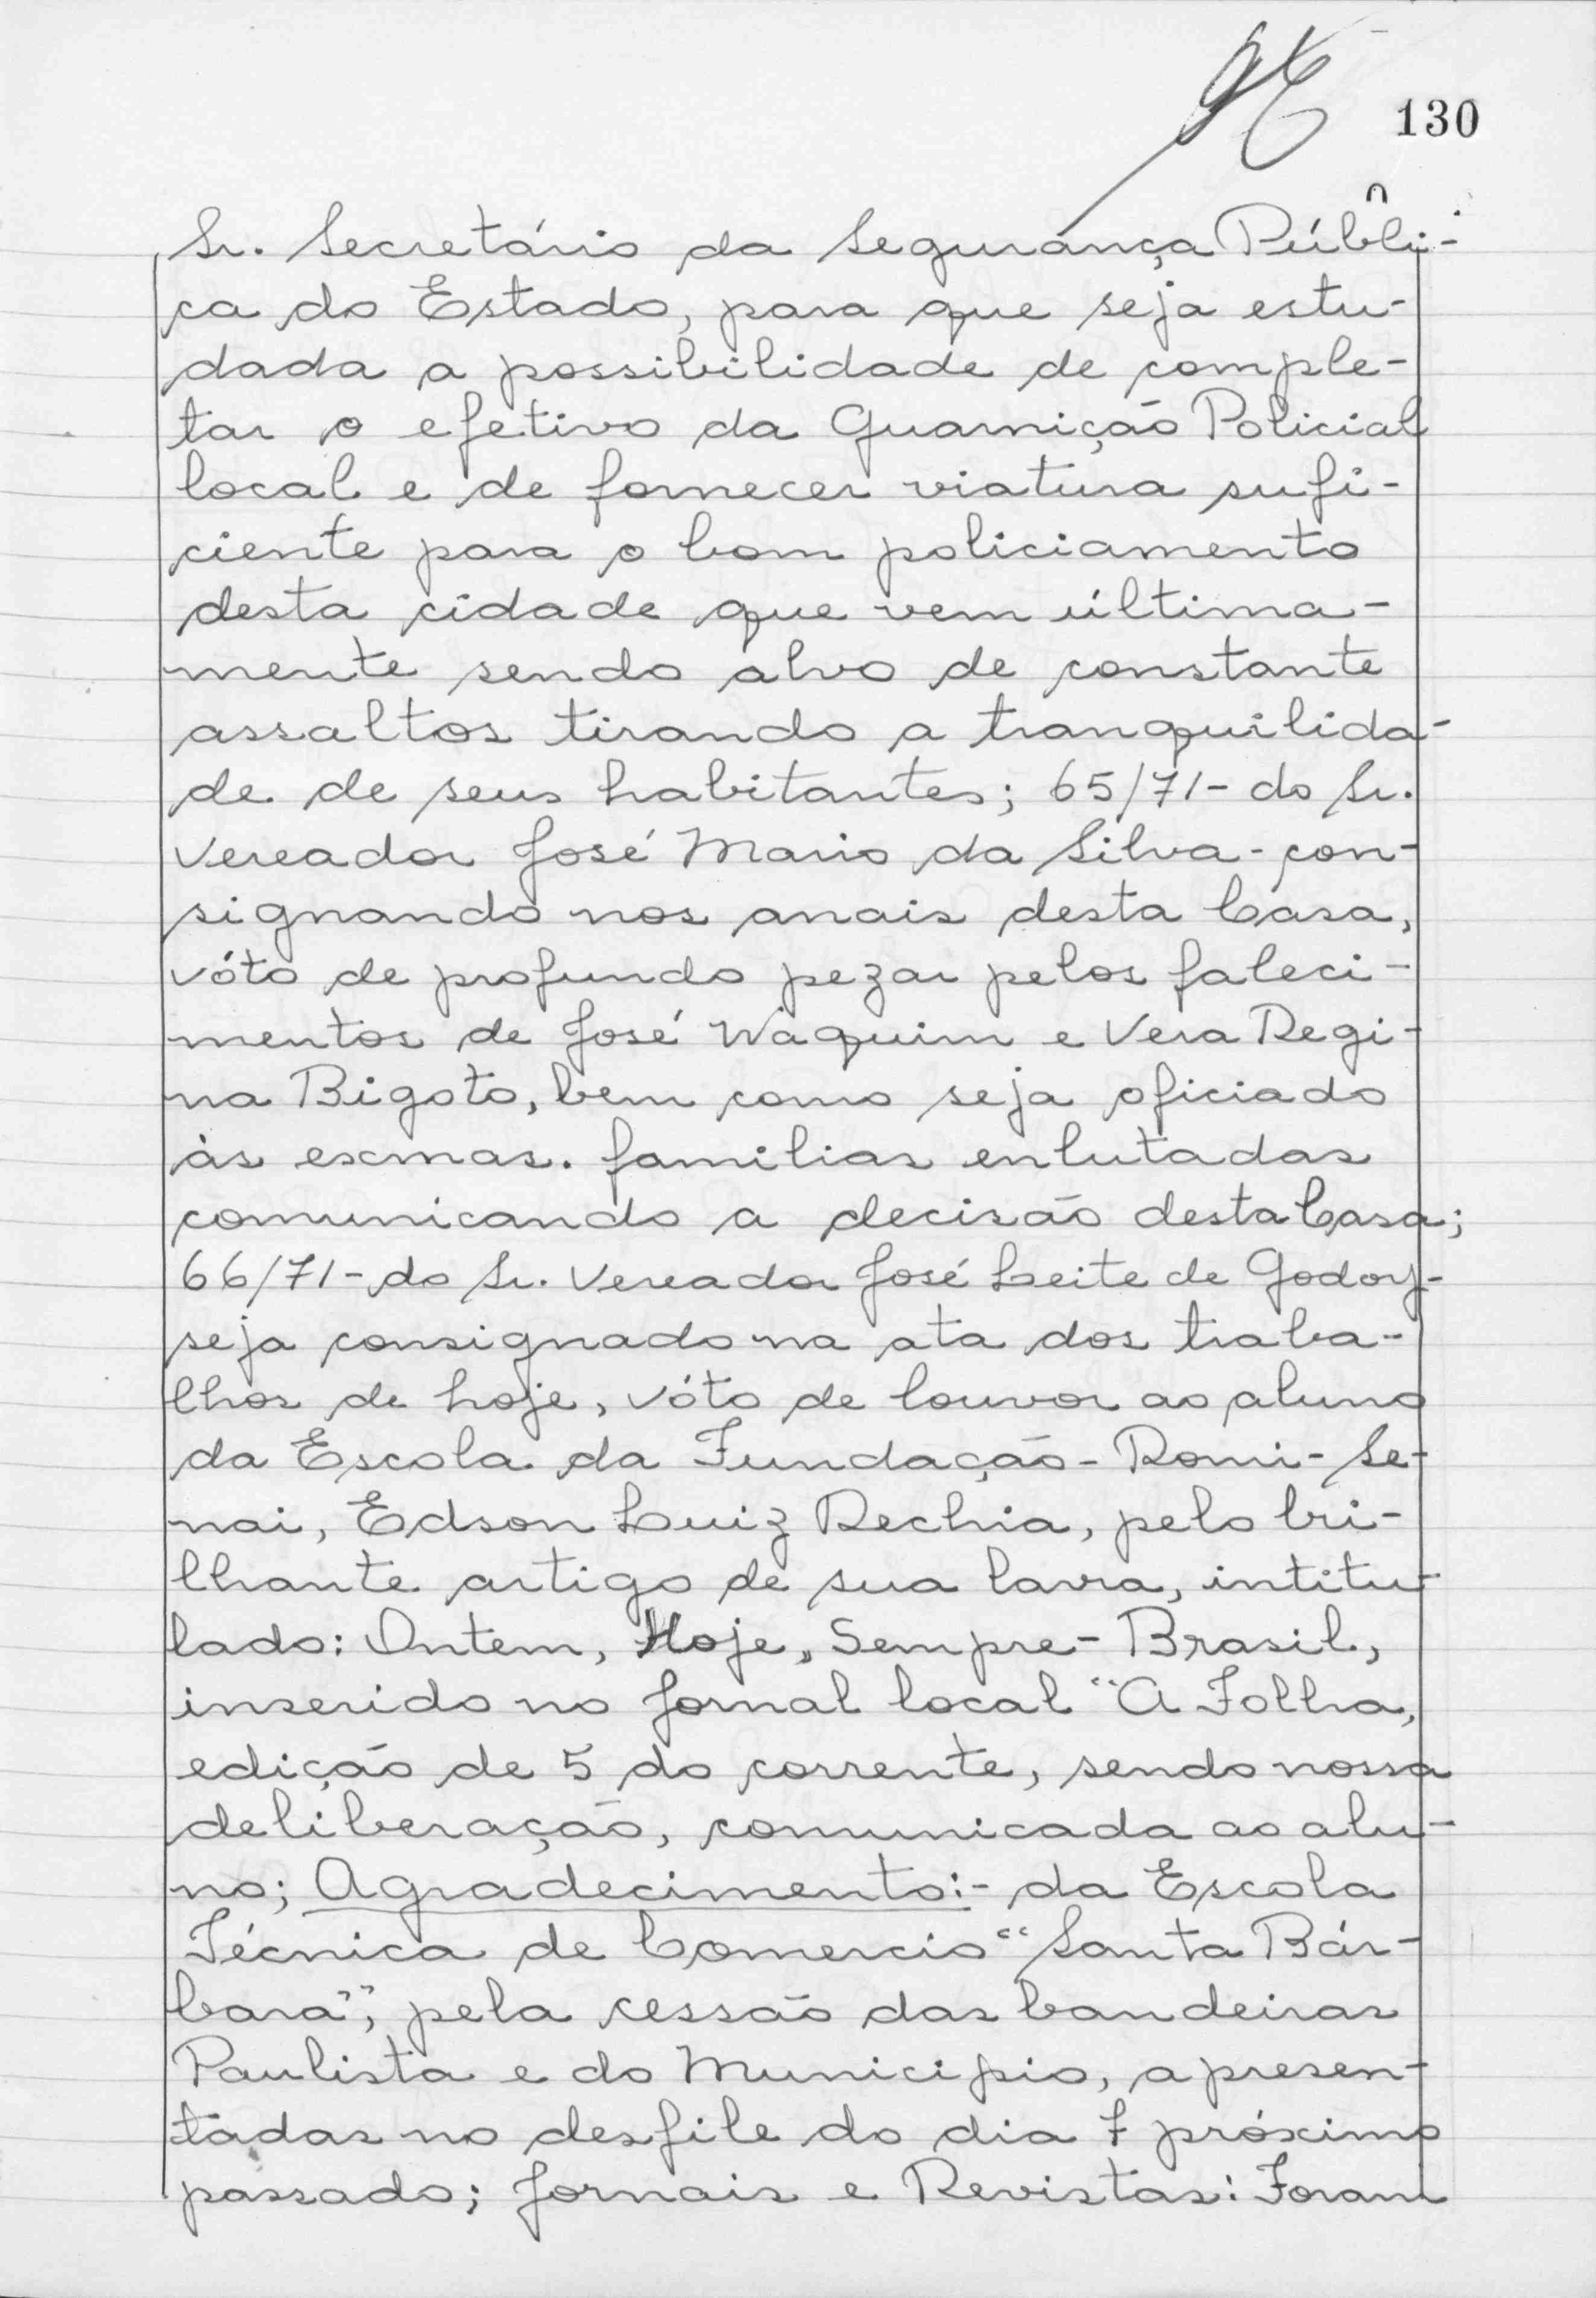 130
Sr. Secretário da Segurança Públi-
ca do Estado, para que seja estu-
dada a possibilidade de comple-
tar o efetivo da Guarnição Policial
local e de fornecer viatura sufi-
ciente para o bom policiamento
desta cidade que vem última-
mente sendo alvo de constante
assaltos tirando a tranquilida-
de de seus habitantes; 65/71- do Sr.
Vereador José Mario da Silva - con-
signando nos anais desta Casa,
vóto de profundo pezar pelos faleci-
mentos de José Waquim e Vera Regi-
na Bigoto, bem como seja oficiado
às exmas. familias enlutadas
comunicando a decisão desta Casa;
66/71- do Sr. Vereador José Leite de Godoy-
seja consignado na ata dos traba-
lhos de hoje, vóto de louvor ao aluno
da Escola da Fundação - Romi - Se-
nai, Edson Luiz Rechia, pelo bri-
lhante artigo de sua lavra, intitu-
lado: Ontem, Hoje, Sempre - Brasil,
inserido no Jornal local "A Folha,
edição de 5 do corrente, sendo nossa
deliberação, comunicada ao alu-
no; Agradecimento:- da Escola
Técnica de Comercio "Santa Bár-
bara", pela cessão das bandeiras
Paulista e do Municipio, apresen-
tadas no desfile do dia 7 próximo
passado; Jornais e Revistas: Foram